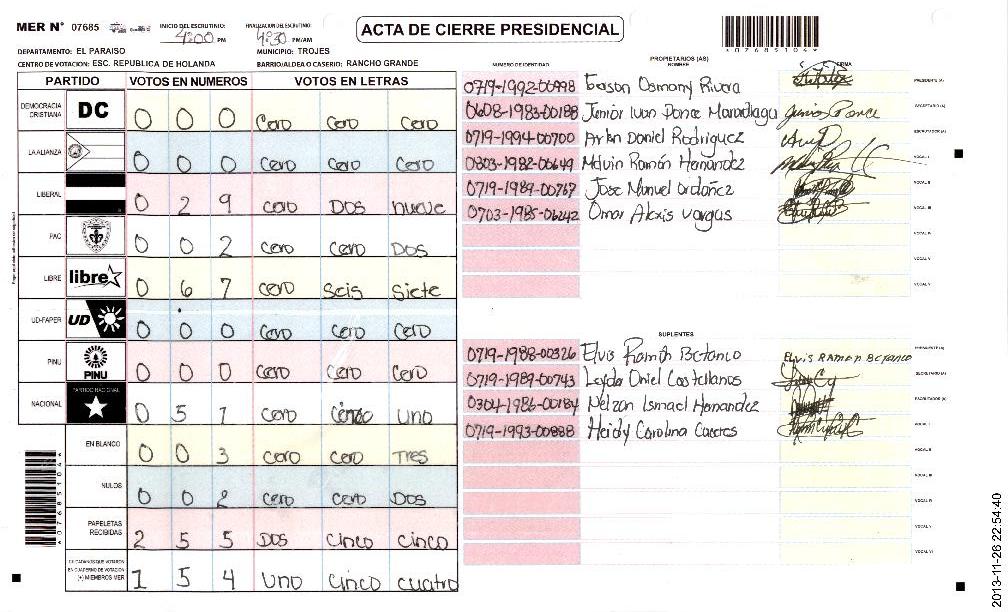 MER N° 07685 INICIO DEL ESCRUTINIO: 4:00 PM FINALIZACION DEL ESCRUTINIO: 4:30 PM/AM
ACTA DE CIERRE PRESIDENCIAL
*07685104*
DEPARTAMENTO: EL PARAISO MUNICIPIO: TROJES
CENTRO DE VOTACION: ESC. REPUBLICA DE HOLANDA BARRIO/ALDEA O CASERIO: RANCHO GRANDE
PARTIDO VOTOS EN NUMEROS VOTOS EN LETRAS
DEMOCRACIA CRISTIANA DC 0 0 0 Cero Cero Cero
LA ALIANZA 0 0 0 Cero Cero Cero
LIBERAL 0 2 9 Cero DOS nueve
PAC 0 0 2 Cero Cero DOS
LIBRE libre 0 6 7 Cero Seis Siete
UD-FAPER UD 0 0 0 Cero Cero Cero
PINU PINU 0 0 0 Cero Cero Cero
NACIONAL PARTIDO NACIONAL 0 5 1 Cero Cinco Uno
EN BLANCO 0 0 3 Cero Cero Tres
NULOS 0 0 2 Cero Cero Dos
PAPELETAS RECIBIDAS 2 5 5 DOS Cinco Cinco
CIUDADANOS QUE VOTARON EN CUADERNO DE VOTACION (+) MIEMBROS MER 1 5 4 Uno Cinco cuatro
PROPIETARIOS (AS)
NUMERO DE IDENTIDAD NOMBRES FIRMA
0719-1992-00998 Osmony Rivera PRESIDENTE (A)
0608-1983-00188 Junior Ivan Ponce Maradiaga Junior Ponce SECRETARIO (A)
0719-1994-00700 Daniel Rodriguez ESCRUTADOR (A)
0803-1982-00649 Melvin Ramón Hernández VOCAL I
0719-1989-00767 Jose Manuel Ordoñez VOCAL II
0703-1985-06242 Omar Alexis Vargas VOCAL III
VOCAL IV
VOCAL V
VOCAL V
SUPLENTES
0719-1988-00326 Elvis Ramón Betanco ELVIS RAMON BETANCO PRESIDENTE (A)
0719-1989-00743 Oriel Castellanos SECRETARIO (A)
0304-1986-00184 Nelzon Ismael Hernandez ESCRUTADOR (A)
0719-1993-00888 Heidy Carolina VOCAL I
VOCAL II
VOCAL III
VOCAL IV
VOCAL V
VOCAL VI
*07685104*
2013-11-26 22:54:40